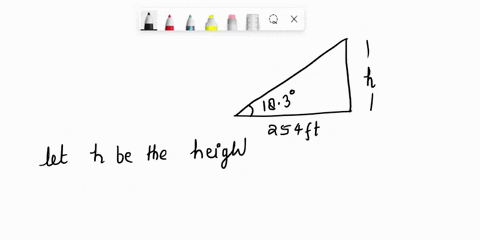 h
18.3°
254ft
let h be the heigh